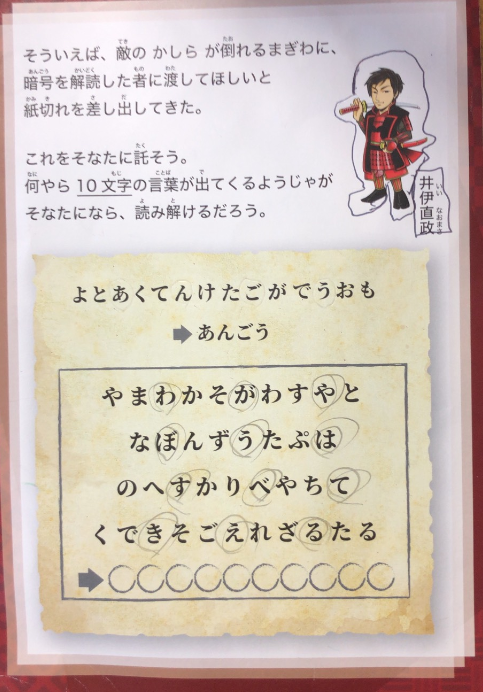 そういえば、敵の かしら が倒れるまぎわに、
暗号を解読した者に渡してほしいと
紙切れを差し出してきた。
これをそなたに託そう。
何やら 10 文字の言葉が出てくるようじゃが
そなたになら、読み解けるだろう。
井伊直政
よとあくてんけたごがでうおも
➡ あんごう
やまわかそがわすやと
なぼんずうたぷは
のへすかりべやちて
くできそごえれざるたる
➡〇〇〇〇〇〇〇〇〇〇